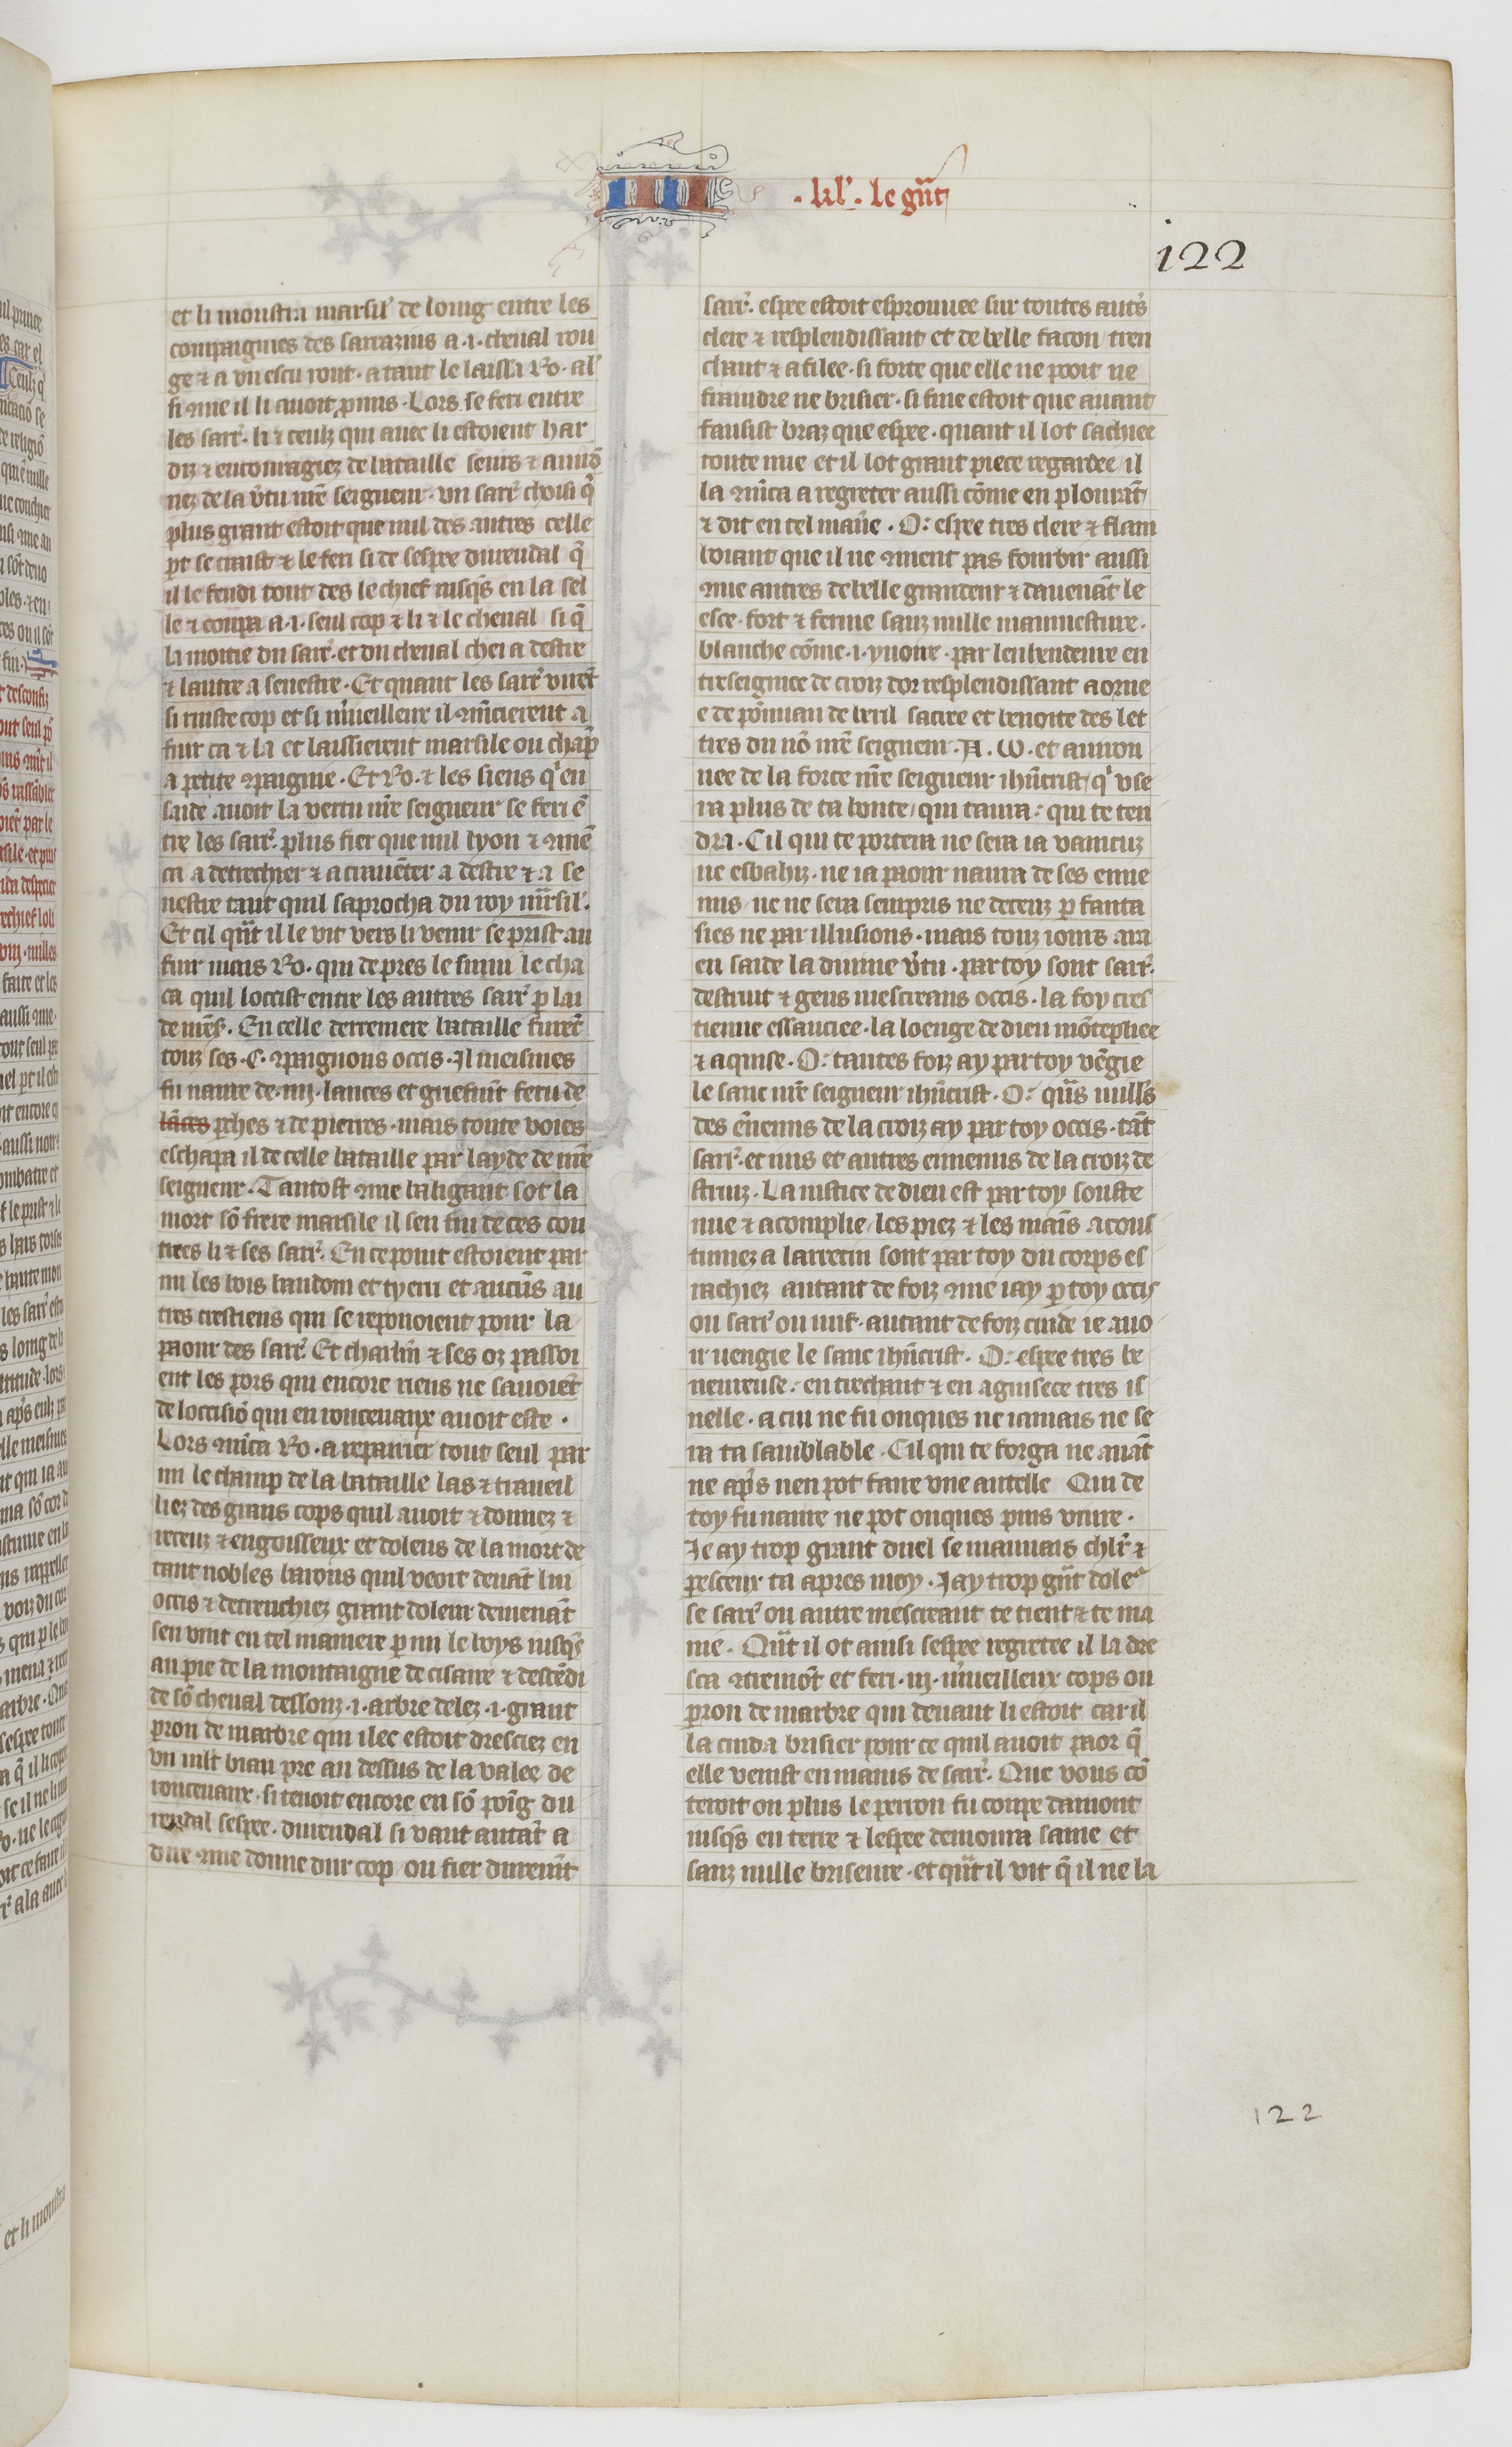 .kl'. le gūt
122
et li moustra marsil' de loing entre les
compaignies des sarrazins a .i. cheual rou
ge & a vn escu ront. a tant le laissa Ro. al'
si 9me il li auoit pmis. Lors se feri entre
les sarr̃. li & ceulz qui auec li estoient har
diz & encouragiez de bataille seurs & auirō
nez de la v̾tu nr̃e seigneur. vn sarr̃ choisi q̃
plus grant estoit que nul des autres celle
pt se traist & le feri si de sespee durendal q̃
il le fendi tout des le chief iusq̃s en la sel
le & coupa a .i. seul cop & li & le cheual si q̃
la moitie du sarr̃. et du cheual chei a destre
& lautre a senestre. Et quant les sarr̃ virēt
si ruiste cop et si m̾ueilleux il 9mēcierent a
fuir ca & la et laissierent marsile ou chāp
a petite 9paignie. Et Ro. & les siens q̾ en
saide auoit la vertu nr̃e seigneur se feri ē
tre les sarr̃. plus fier que nul lyon & 9mē
ca a detrechier & a crauēter a destre & a se
nestre tant quil saprocha du roy marsil'.
Et cil qūt il le vit vers li venir se prist au
fuir mais Ro. qui de pres le suiui le cha
ca quil loccist entre les autres sarr̃ p lui
de mes̃. En celle derreniere bataille furēt
touz ses .C. 9paignons occis. Il meismes
fu naure de .iiij. lances et griefmt feru de
lāces perches & de pierres. mais toute voies
eschapa il de celle bataille par layde de nr̃e
seigneur. Tantost 9me baligant sot la
mort sō frere marsile il sen fui de ces con
trees li & ses sarr̃. En ce point estoient par
mi les bois baudoin et tyerri et aucūs au
tres crestiens qui se reponoient pour la
paour des sarr̃. Et charlm̃ & ses oz passoi
ent les pors qui encore riens ne sauoiēt
de loccisiō qui en rouceuaux auoit este.
Lors 9mēca Ro. a repairier tout seul par
mi le champ de la bataille las & traueil
liez des grans cops quil auoit & donnez &
receuz & engoisseux et dolens de la mort de
tant nobles barons quil veoit deuāt lui
occis & detrenchiez grant doleur demenāt
sen vint en tel maniere p mi le boys iusq̃s
au pie de la montaigne de cisaire & descēdi
de sō cheual dessouz .i. arbre delez .i. grant
perron de marbre qui ilec estoit dresciez en
vn mlt biau pre au dessus de la valee de
rouceuaux. si tenoit encore en sō poīg du
rendal sespee. durendal si vaut autāt a
dire 9me donne dur cop ou fier duremt
sarr̃. espee estoit esprouuee sur toutes aut̾s
clere & resplendissant et de belle facon tren
chant & afilee. si forte que elle ne pooit ne
fraindre ne brisier. si fine estoit que auant
fausist braz que espee. quant il lot sachiee
toute nue et il lot grant piece regardee il
la 9mēca a regreter aussi cōme en plourāt
& dit en tel mañie. O: espee tres clere & flam
boiant que il ne 9uient pas fourbir aussi
9me autres de belle grandeur & dauenāt le
esce. fort & ferme sanz nulle maumesture.
blanche cōme .i. yuoire. par lenhendeure en
treseigniee de croiz dor resplendissant aorne
e de pōmiau de beril sacree et benoite des let
tres du nō nr̃e seigneur. A. W. et auiron
nee de la force nr̃e seigneur ihūcrist q̾ vse
ra plus de ta bonte qui taura: qui te ten
dra. Cil qui te portera ne sera ia vaincuz
ne esbahiz. ne ia paour naura de ses enne
mis ne ne sera sempris ne deceuz p fanta
sies ne par illusions. mais touz iours ara
en saide la diuine v̾tu. par toy sont sarr̃.
destruit & gens mescreans occis. la foy cres
tienne essauciee. la loenge de dieu mōtepliee
& aquise. O: tantes foiz ay par toy vēgie
le sanc nr̃e seigneur ihūcrist. O: qūs mill's
des ēnemis de la croiz ay par toy occis. tāt
sarr̃. et iuis et autres ennemis de la croiz de
struiz. La iustice de dieu est par toy souste
nue & acomplie les piez & les mais acous
tumez a larrecin sont par toy du corps es
rachiez autant de foiz 9me iay p toy occis
ou sarr̃ ou iuif. autant de foiz cuide ie auo
ir uengie le sanc ihūcrist. O: espee tres be
neureuse. en trechant & en aguisece tres is
nelle. a cui ne fu onques ne iamais ne se
ra ta samblable. Cil qui te forga ne auāt
ne ap̾s nen pot faire vne autelle Qui de
toy fu naure ne pot onques puis viure.
Je ay trop grant duel se mauuais chlr̃ &
peresceux ta apres moy. Jay trop gūt dole
se sarr̃ ou autre mescreant te tient & te ma
nie. Qūt il ot ainsi sespee regretee il la dre
sca 9tremōt et feri .iij. m̾ueilleux cops ou
perron de marbre qui deuant li estoit car il
la cuida brisier pour ce quil auoit paor q̃
elle venist en mains de sarr̃. Que vous cō
teroit on plus le perron fu coupe damont
iusq̃s en terre & lespee demoura saine et
sanz nulle briseure. et qūt il vit q̃ il ne la
122